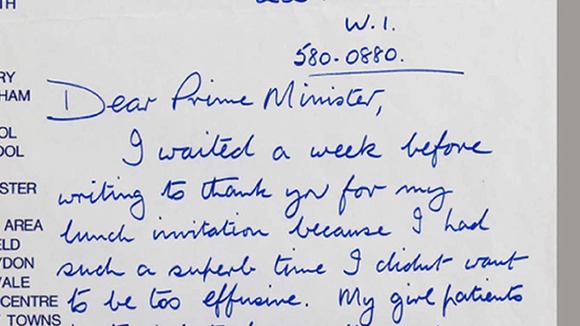 TH
W.1.
580-0880.
RY
HAM
Dear Prime Minister,
OL
OOL
I waited a week before
STER
writing to thank you for my
AREA
lunch invitation because I had
ELD
YDON
such a superb time I didn't want
VALE
CENTRE
to be too effusive. My girl patients
TOWNS